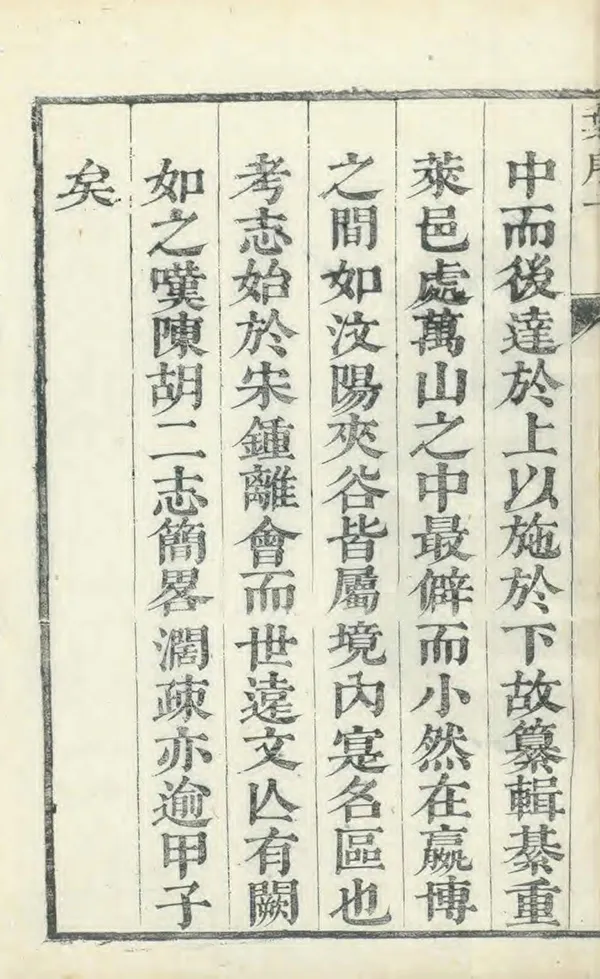 中而後達於上以施於下故纂輯綦重
萊邑處萬山之中最僻而小然在嬴博
之間如汶陽夾谷皆屬境內寔名區也
考志始於宋鍾離會而世遠文亾有闕
如之嘆陳胡二志簡畧濶疎亦逾甲子
矣